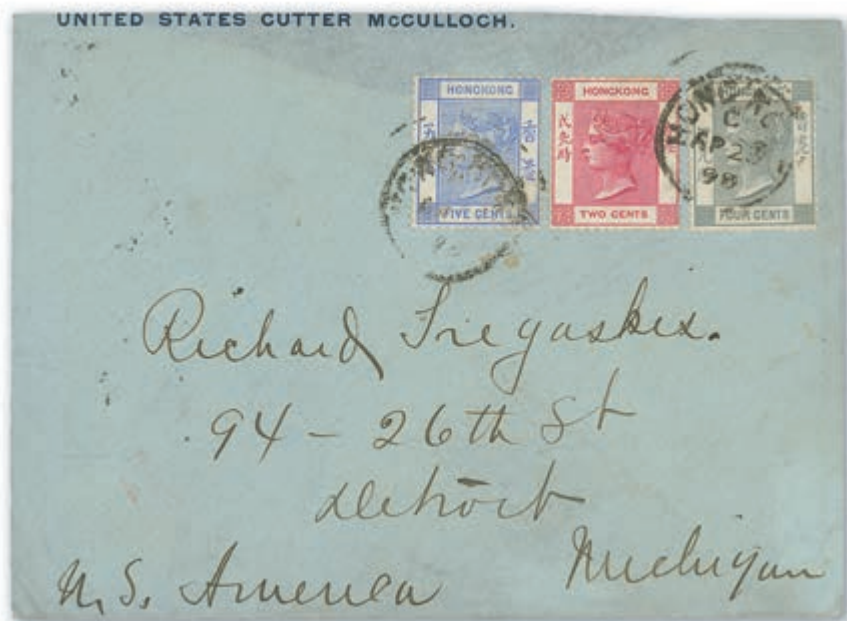 UNITED STATES CUTTER McCULLOCH.
HONGKONG
FIVE CENTS
HONGKONG
TWO CENTS
FOUR CENTS
C
AP 23
98
Richard Tregaskis.
94 - 26th St
Detroit
Michigan
U. S. America